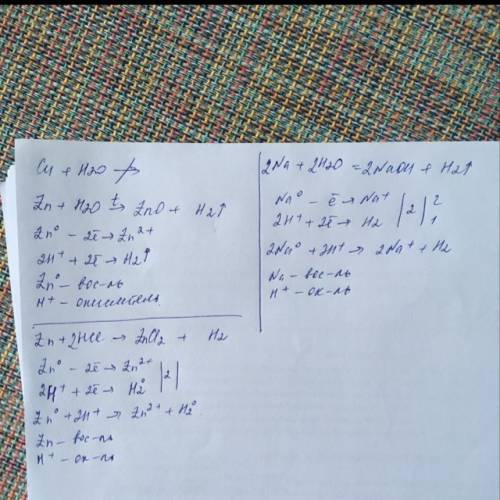 Cu + H2O ↛
Zn + H2O →t ZnO + H2↑
Zn⁰ - 2ē → Zn²⁺
2H⁺ + 2ē → H2↑
Zn⁰ - вос-ль
H⁺ - окислитель
Zn + 2HCl → ZnCl2 + H2
Zn⁰ - 2ē → Zn²⁺
2H⁺ + 2ē → H2⁰ |2|
Zn⁰ + 2H⁺ → Zn²⁺ + H2⁰
Zn - вос-ль
H⁺ - ок-ль
2Na + 2H2O = 2NaOH + H2↑
Na⁰ - ē → Na⁺ |2| 2
2H⁺ + 2ē → H2 | | 1
2Na⁰ + 2H⁺ → 2Na⁺ + H2
Na - вос-ль
H⁺ - ок-ль